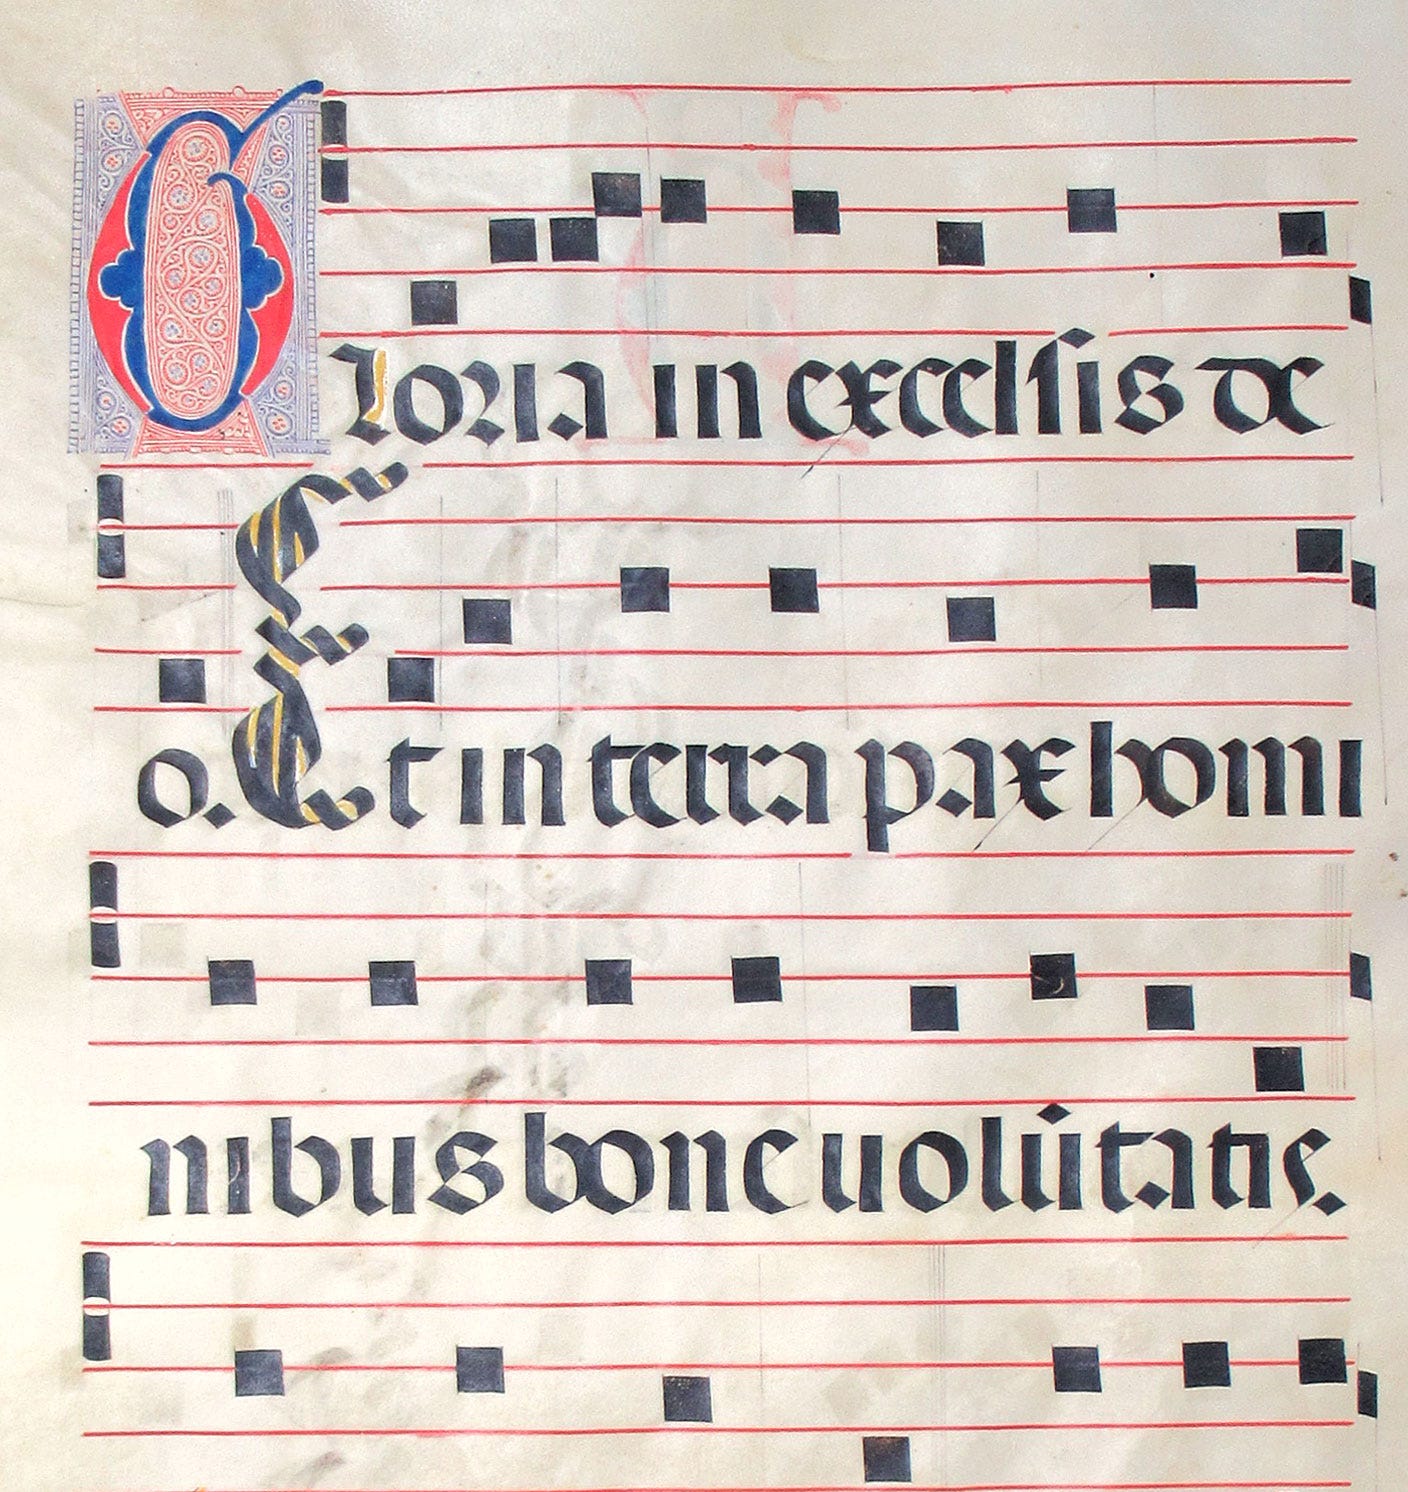 Gloria in excelsis de
o. Et in terra pax homi
nibus bone uolūtatis.